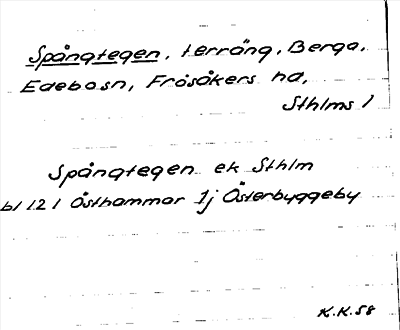 Spångtegen, terräng, Berga,
Edebo sn, Frösåkers hd,
Sthlms l
Spångtegen ek Sthlm
bl 121 Östhammar 1j Österbyggeby
K.K. 58